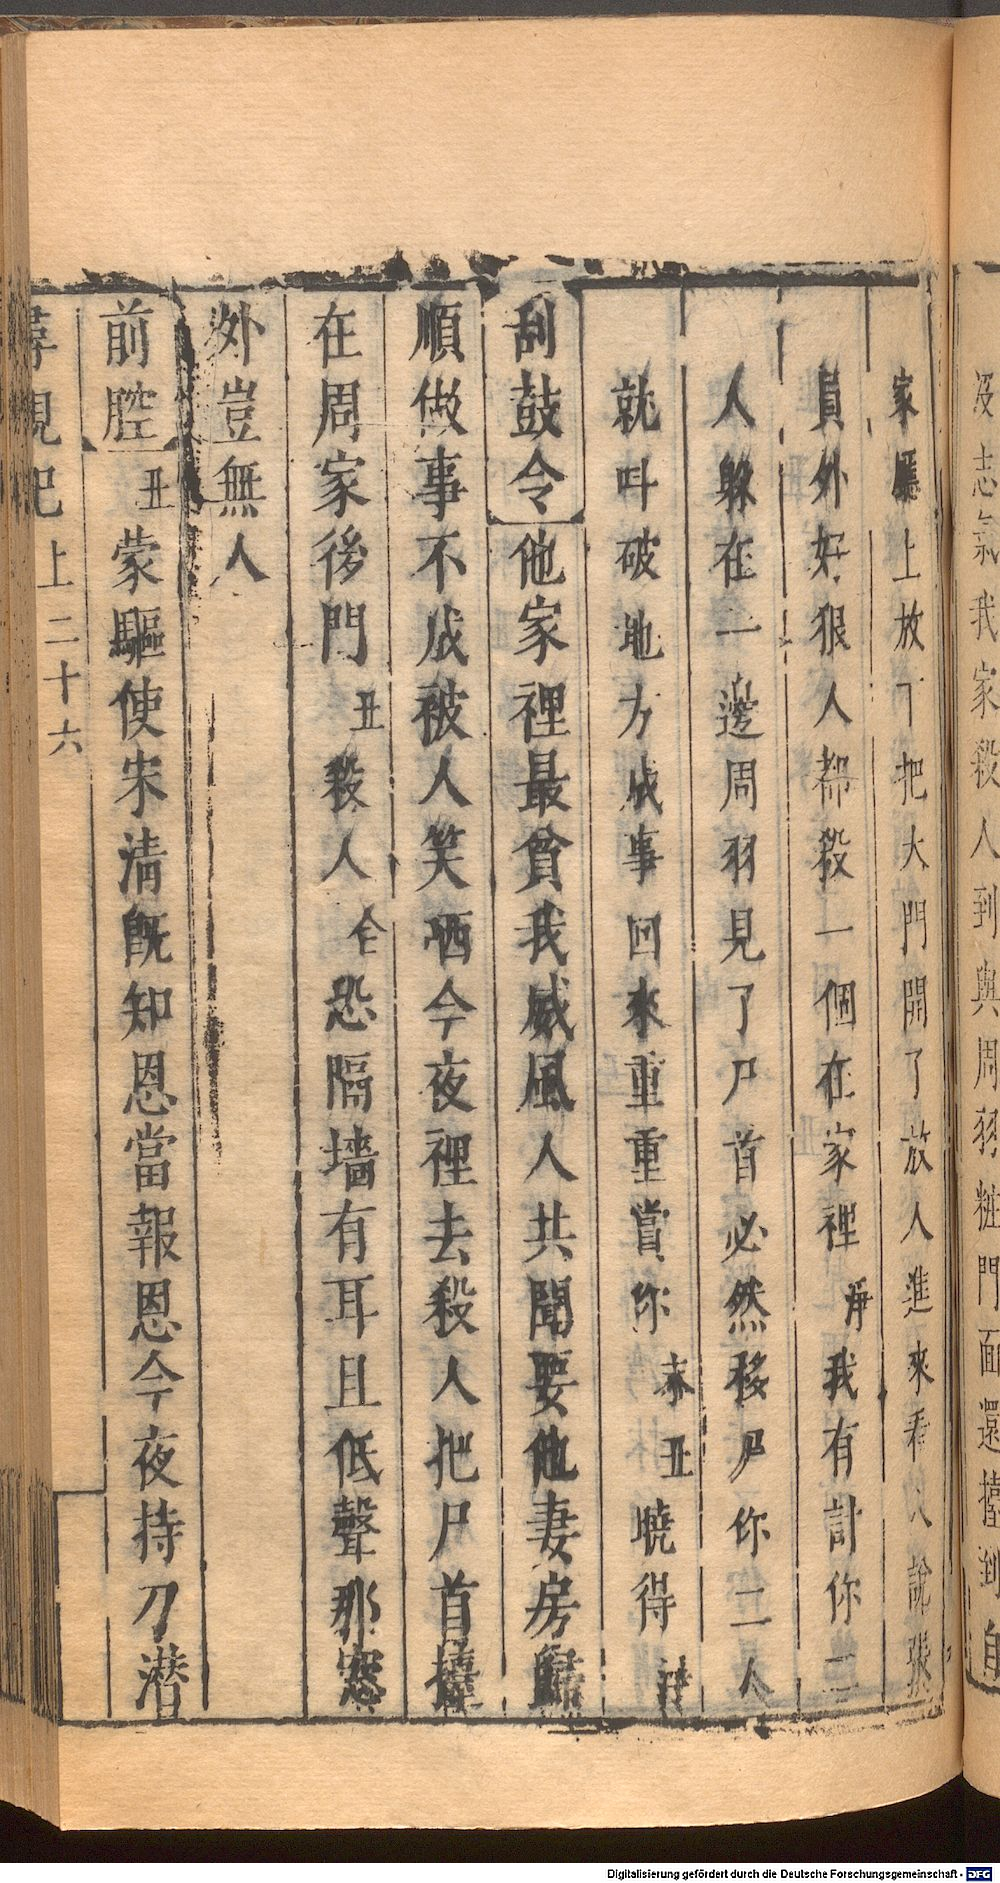 沒志氣我家殺人到與周羽粧門面還擡到自
家廳上放了把大門開了放人進來看人說張
員外好狠人都殺一個在家裡淨我有計你二
人躲在一邊周羽見了尸首必然移尸你二人
就呌破地方成事回來重重賞你末丑曉得
刮鼓令他家裡最貧我威風人共聞要他妻房歸
順做事不成被人笑哂今夜裡去殺人把尸首擡
在周家後門丑殺人仝恐隔墻有耳且低聲那窓
外豈無人
前腔丑蒙驅使宋清旣知恩當報恩今夜持刀潜
尋親記 上二十六
Digitalisierung gefördert durch die Deutsche Forschungsgemeinschaft - DFG